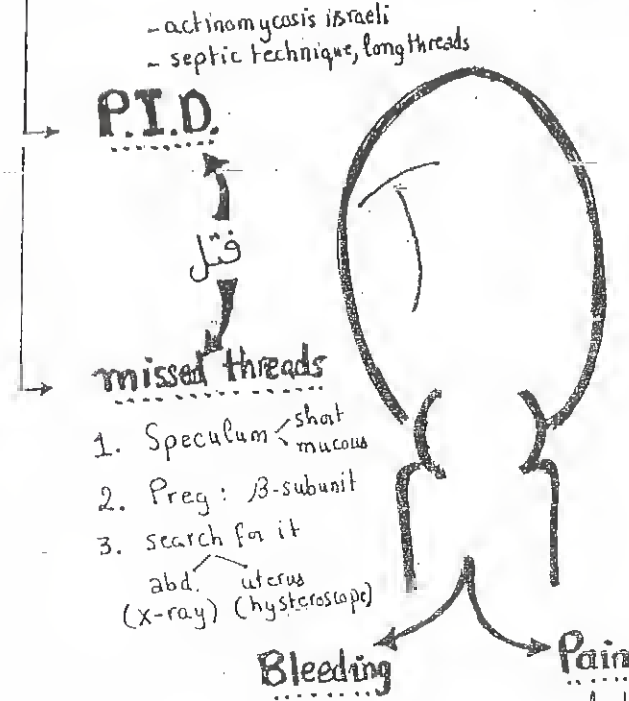 - actinomycosis israeli
- septic technique, long threads
P.I.D.
فتل
missed threads
1. Speculum short
mucous
2. Preg : β-subunit
3. search for it
abd. uterus
(x-ray) (hysteroscope)
Bleeding
Pain